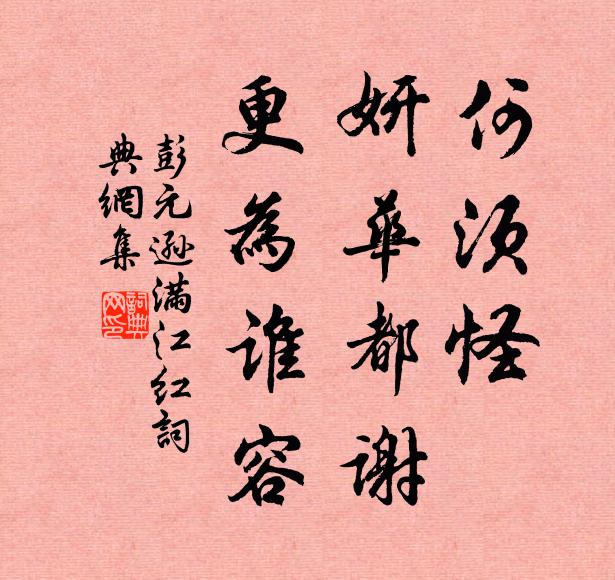 何須怪
妍華都謝
更為誰容
彭元遜滿江紅詞
典網集
詞典
网印